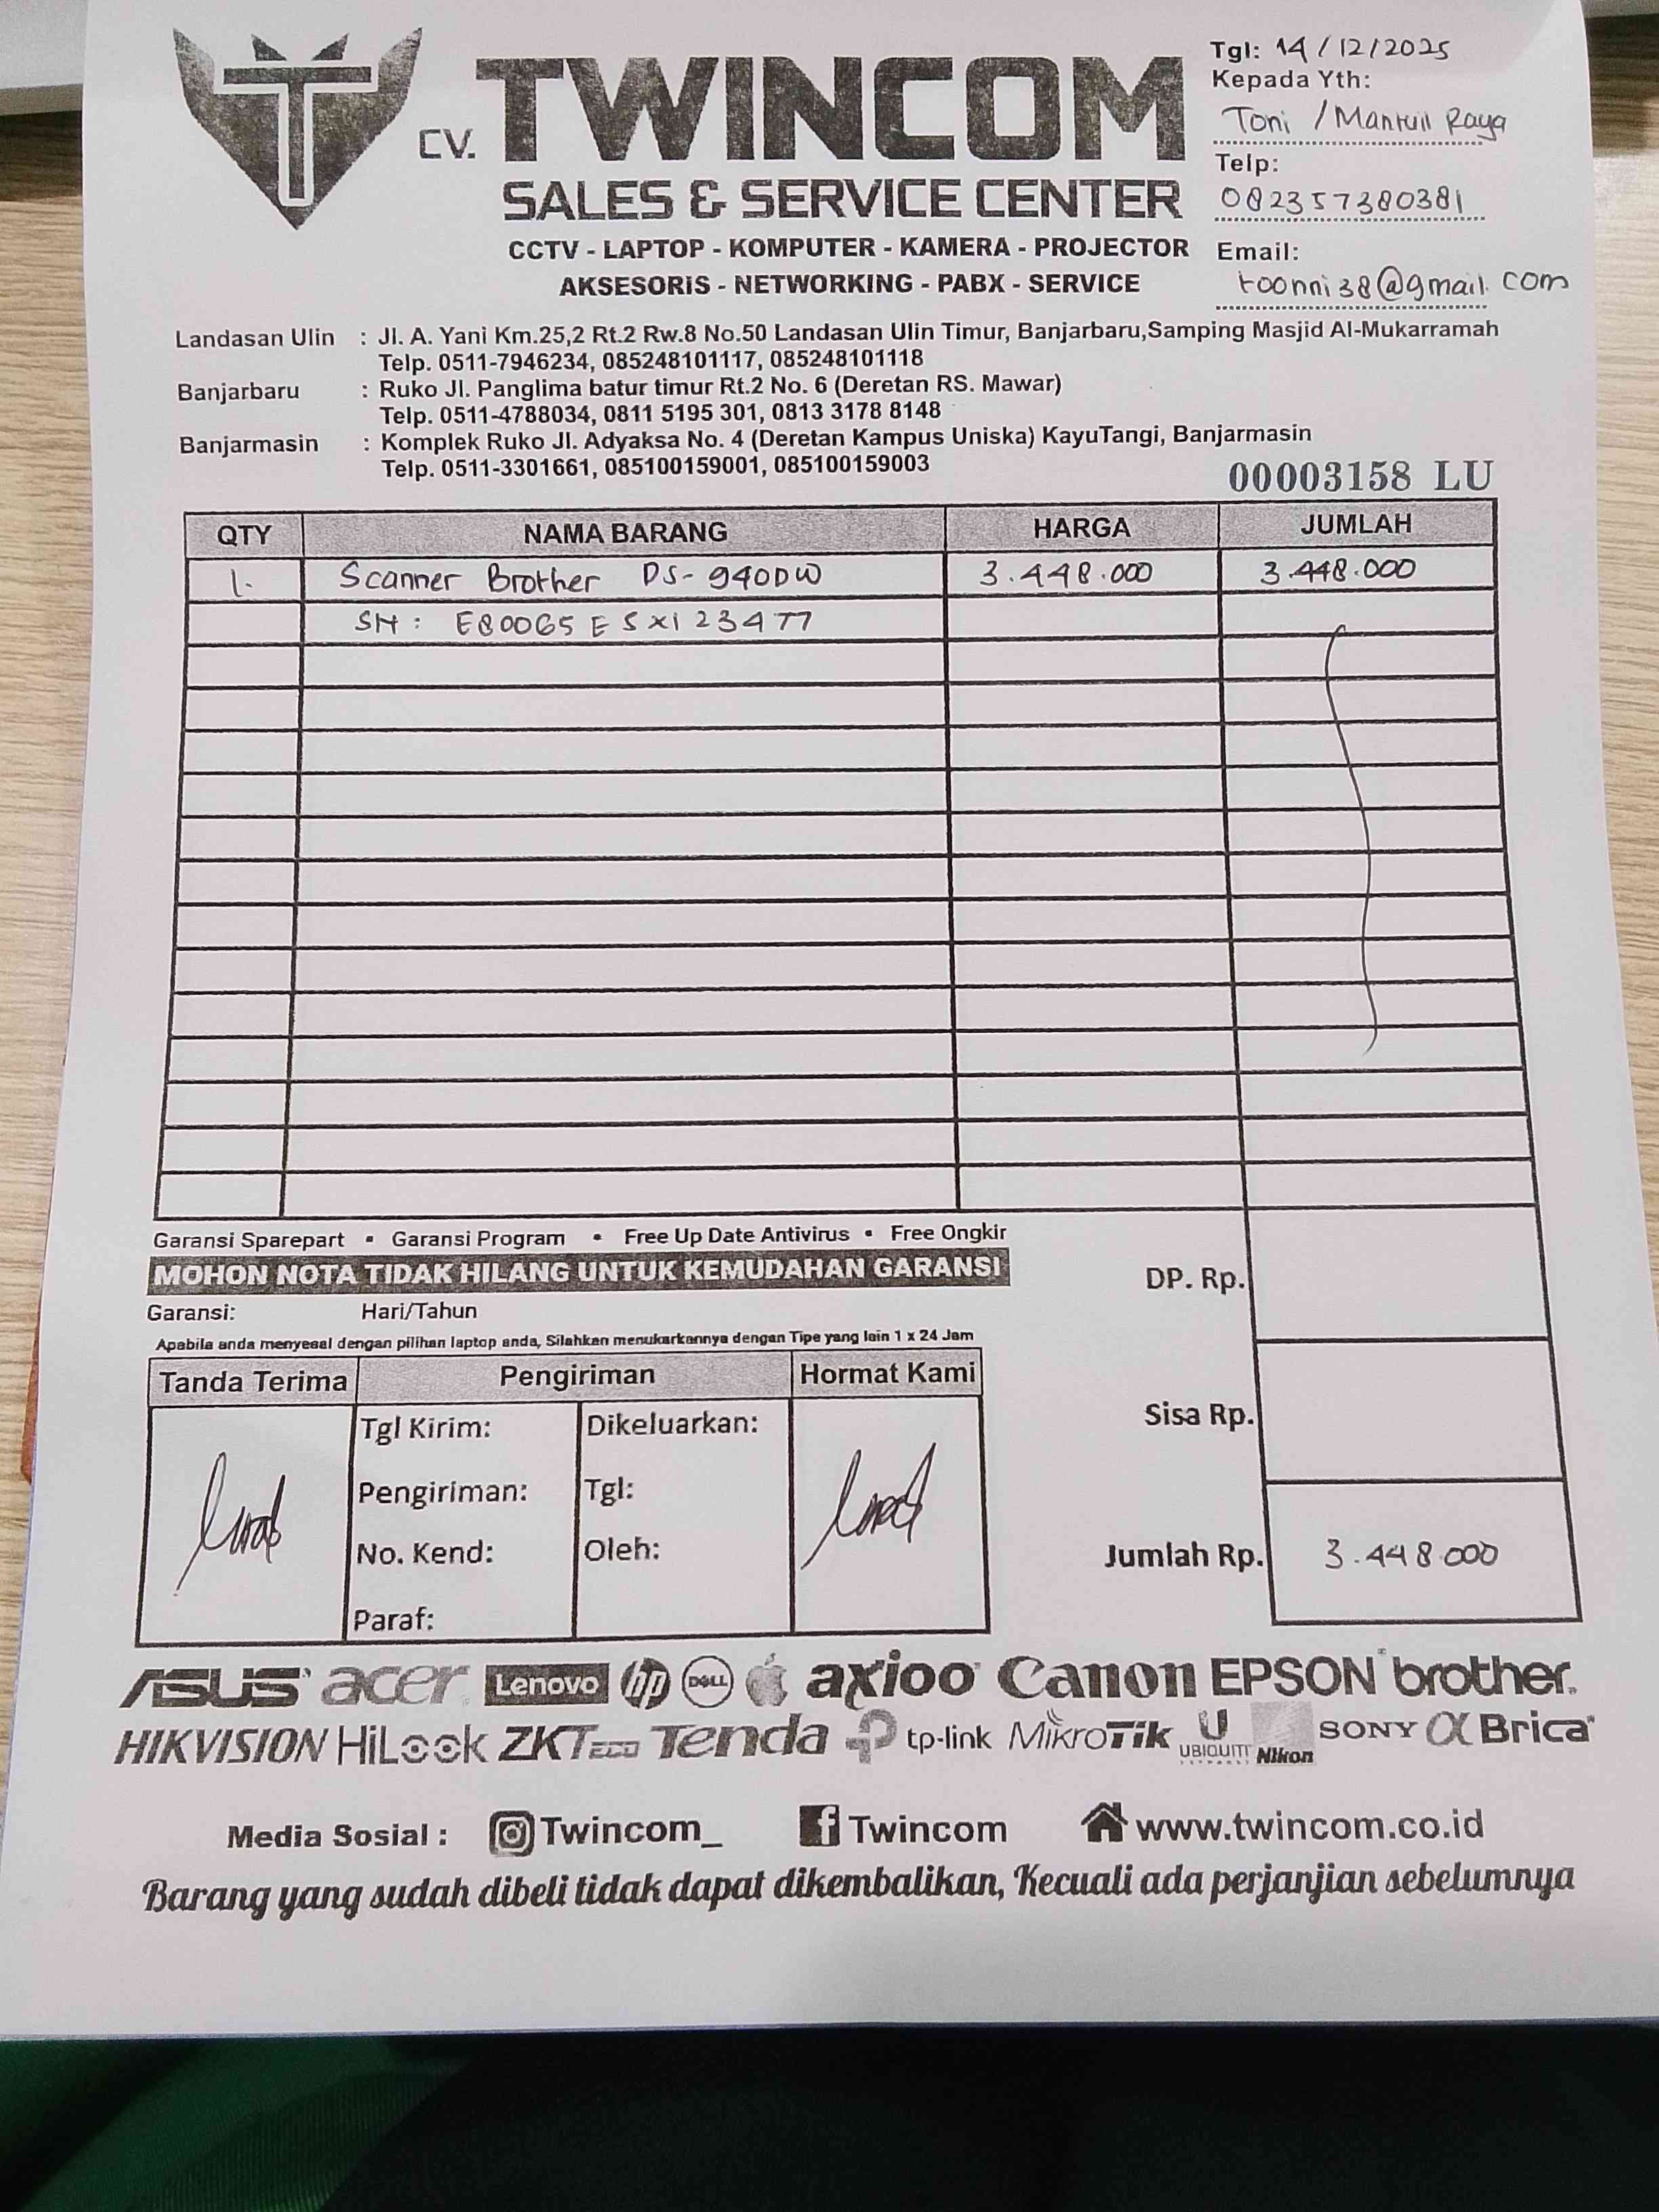 CV. TWINCOM
SALES & SERVICE CENTER
CCTV - LAPTOP - KOMPUTER - KAMERA - PROJECTOR
AKSESORIS - NETWORKING - PABX - SERVICE
Tgl: 14/12/2025
Kepada Yth:
Toni / Mantuil Raya
Telp:
082357380381
Email:
toonni38@gmail.com
Landasan Ulin : Jl. A. Yani Km.25,2 Rt.2 Rw.8 No.50 Landasan Ulin Timur, Banjarbaru,Samping Masjid Al-Mukarramah
Telp. 0511-7946234, 085248101117, 085248101118
Banjarbaru : Ruko Jl. Panglima batur timur Rt.2 No. 6 (Deretan RS. Mawar)
Telp. 0511-4788034, 0811 5195 301, 0813 3178 8148
Banjarmasin : Komplek Ruko Jl. Adyaksa No. 4 (Deretan Kampus Uniska) KayuTangi, Banjarmasin
Telp. 0511-3301661, 085100159001, 085100159003
00003158 LU
QTY NAMA BARANG HARGA JUMLAH
1. Scanner Brother DS-940DW 3.448.000 3.448.000
SN : E80065E5X123477
Garansi Sparepart • Garansi Program • Free Up Date Antivirus • Free Ongkir
MOHON NOTA TIDAK HILANG UNTUK KEMUDAHAN GARANSI
Garansi: Hari/Tahun
Apabila anda menyesal dengan pilihan laptop anda, Silahkan menukarkannya dengan Tipe yang lain 1 x 24 Jam
DP. Rp.
Sisa Rp.
Jumlah Rp. 3.448.000
Tanda Terima Pengiriman Hormat Kami
Tgl Kirim: Dikeluarkan:
Pengiriman: Tgl:
No. Kend: Oleh:
Paraf:
ASUS acer Lenovo hp DELL axioo Canon EPSON brother.
HIKVISION HiLook ZKTeco Tenda tp-link MikroTik UBIQUITI Nikon SONY α Brica
Media Sosial : Twincom_ Twincom www.twincom.co.id
Barang yang sudah dibeli tidak dapat dikembalikan, Kecuali ada perjanjian sebelumnya